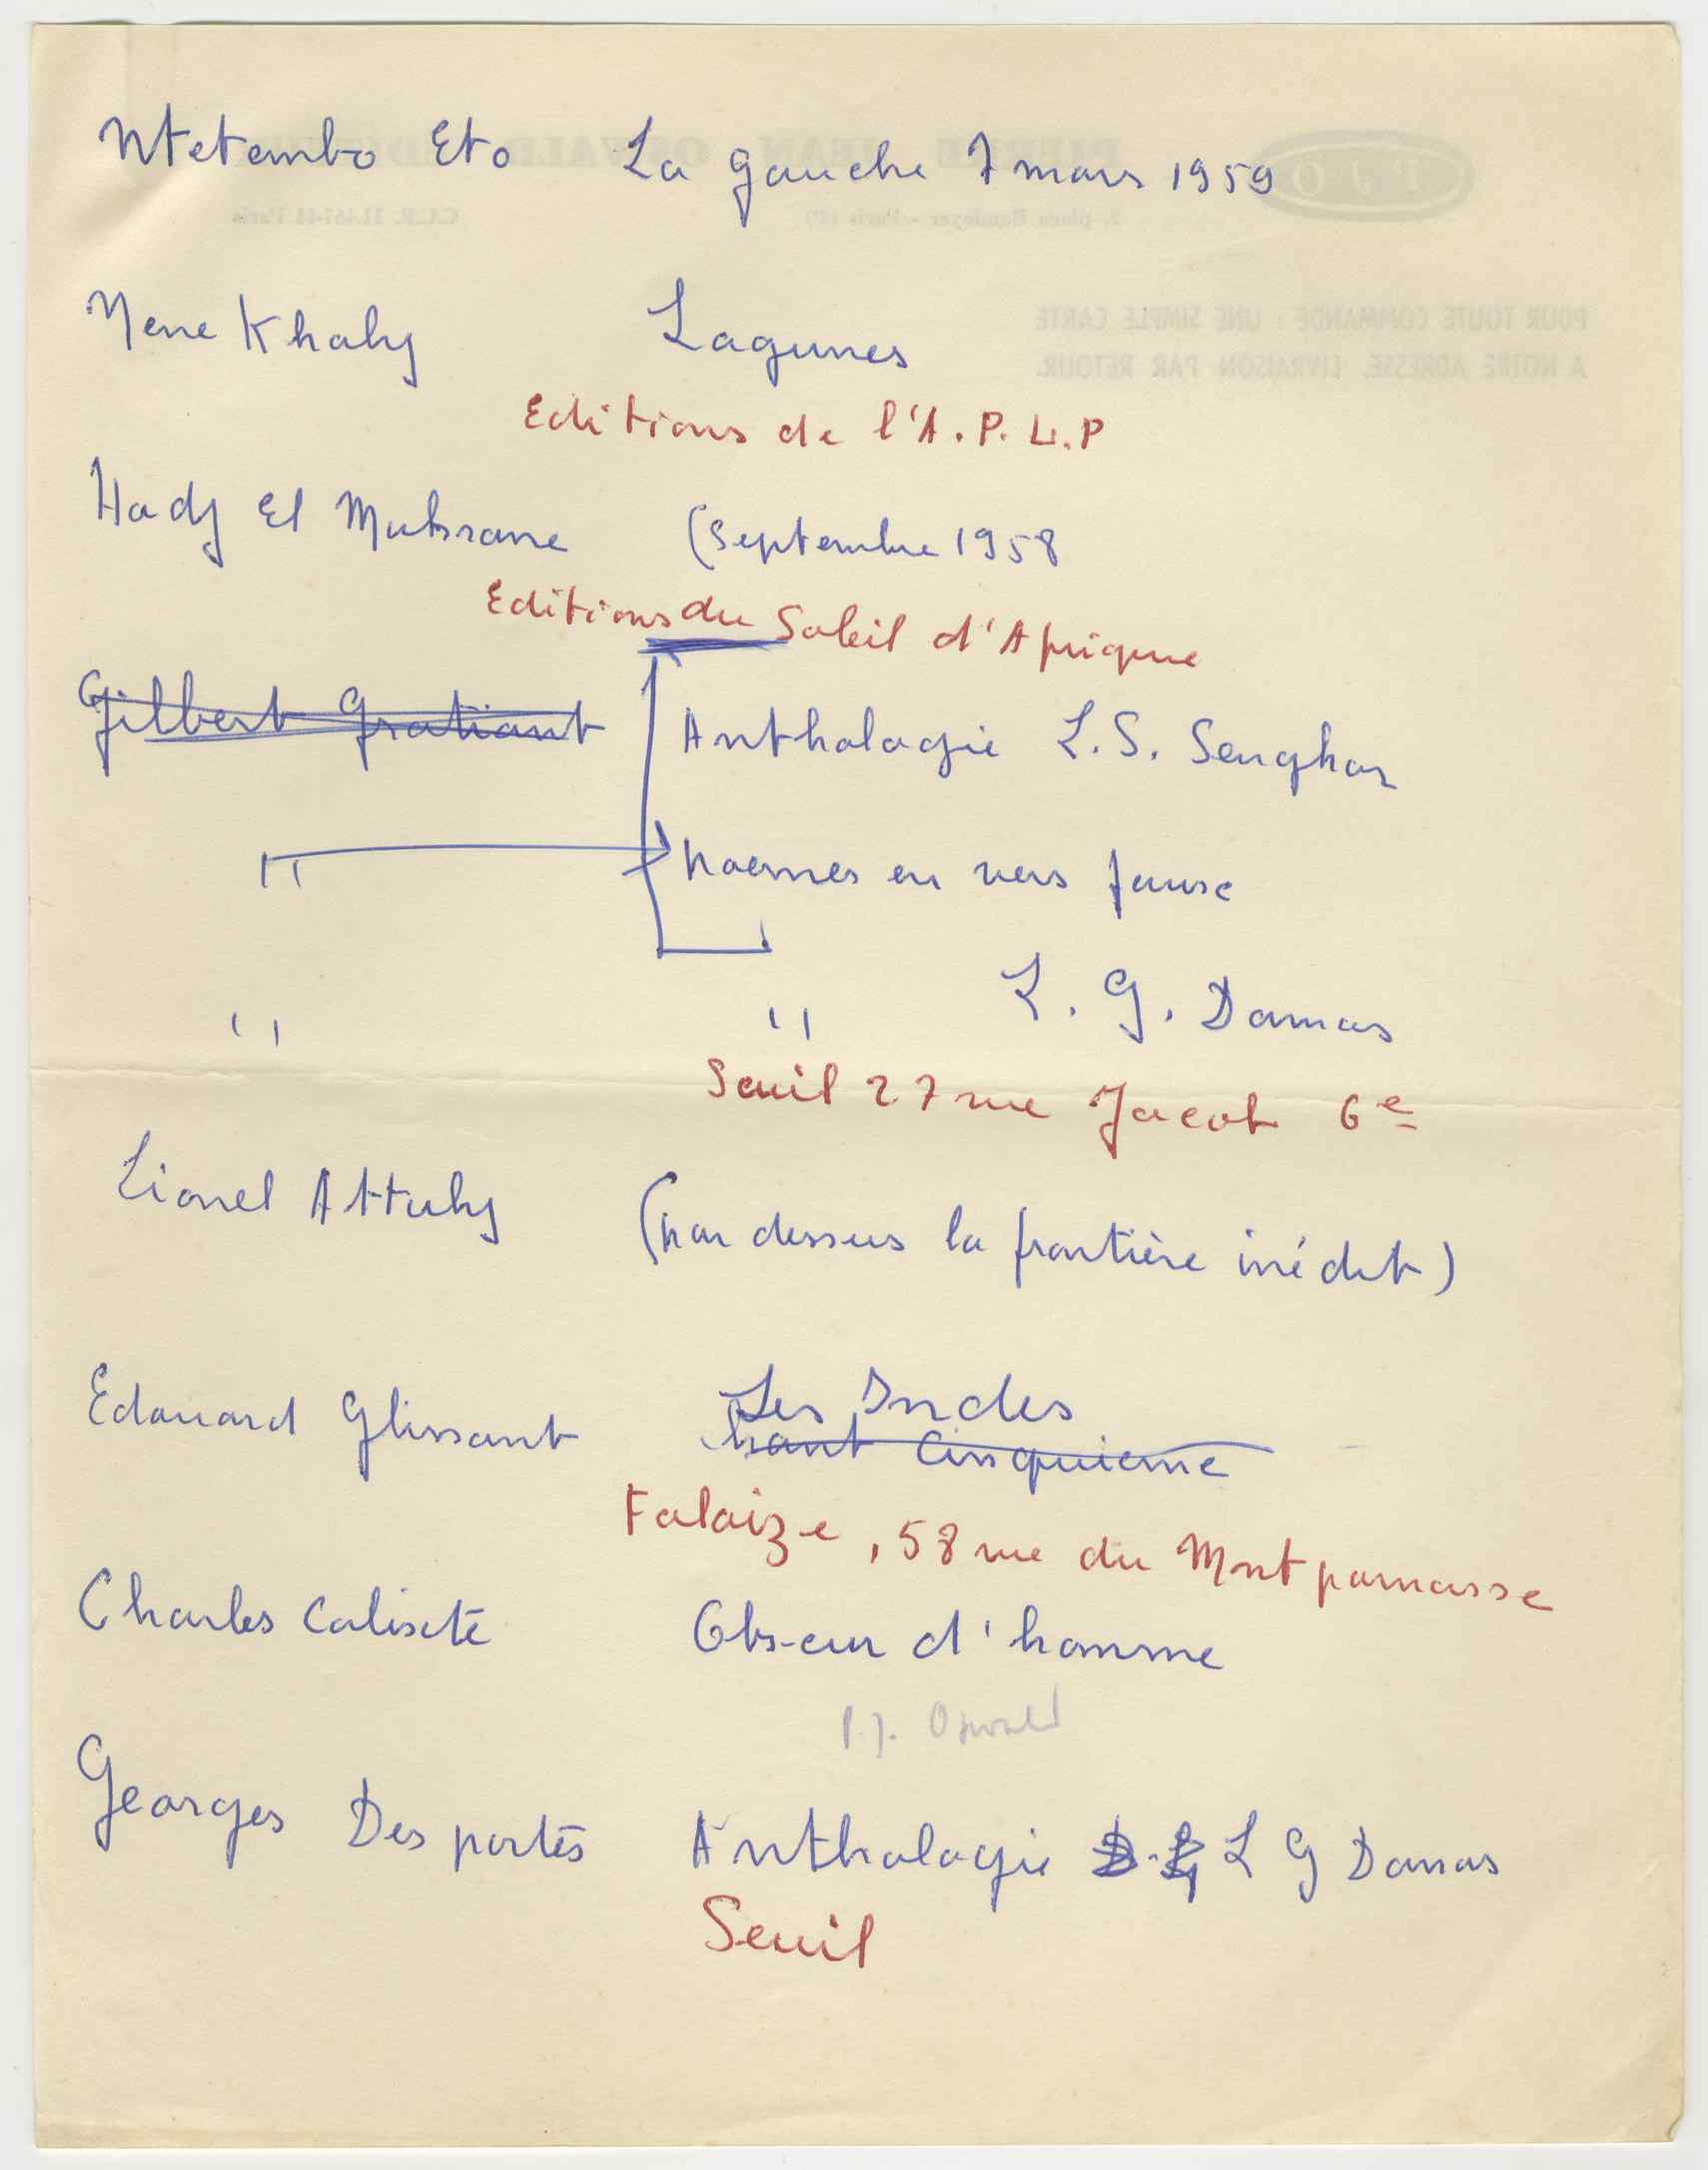 Ntetembo Eto La gauche 7 mars 1959
Nene Khaly Lagunes
Editions de l'A.P.L.P
Hadj El Mukrane (Septembre 1958
Editions du Soleil d'Afrique
Gilbert Gratiant Anthologie L.S. Senghor
" poemes en vers fausc
" " L. G. Damas
Seuil 27 rue Jacob 6e
Lionel Attuly (par dessus la frontière inédit)
Edouard Glissant Les Indes
Chant Cinquieme
Falaize, 58 rue du Montparnasse
Charles Calixte Obscur d'homme
P.J. Oswald
Georges Desportes Anthologie L G Damas
Seuil
PIERRE JEAN OSWALD EDITEUR
PJO
C.C.P. Paris
POUR TOUTE COMMANDE : UNE SIMPLE CARTE
A NOTRE ADRESSE. LIVRAISON PAR RETOUR.